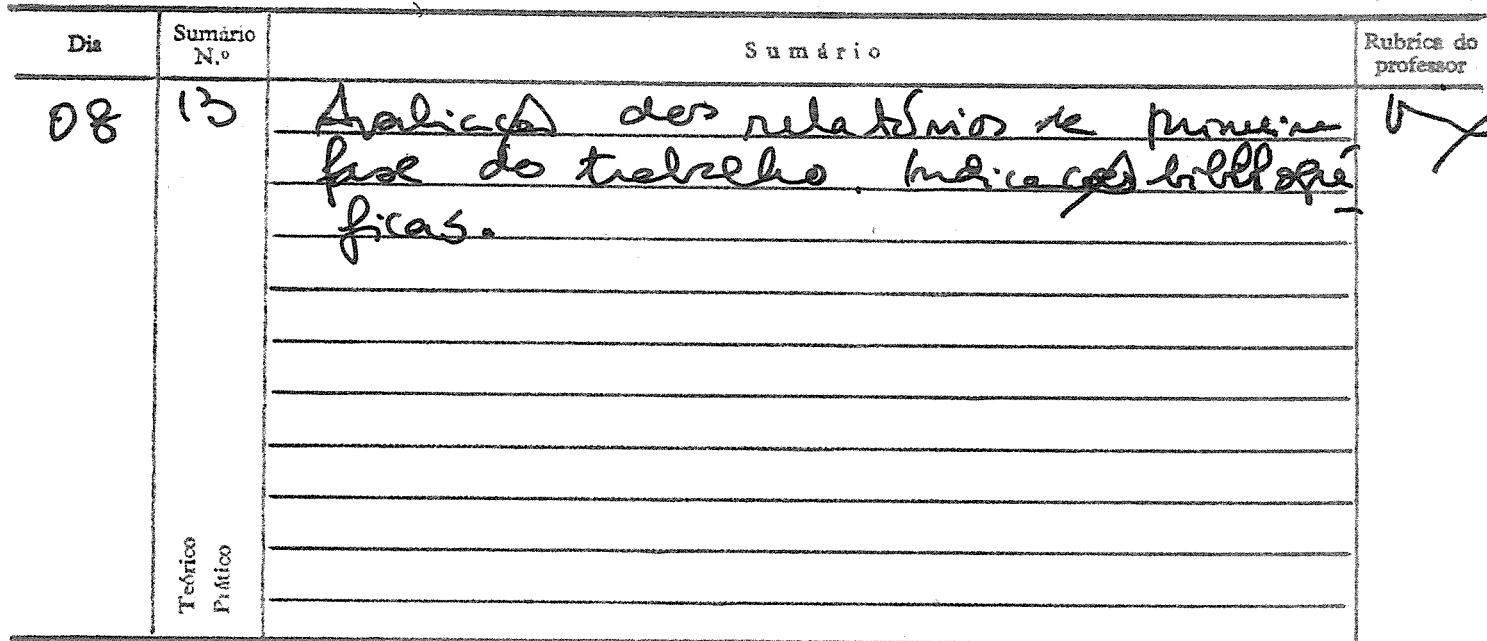 Dia
Sumário
N.º
Sumário
Rubrica do
professor
08
13
Avaliação dos relatórios da primeira
fase do trabalho. Indicações bibliográ-
ficas.
Teórico
Prático